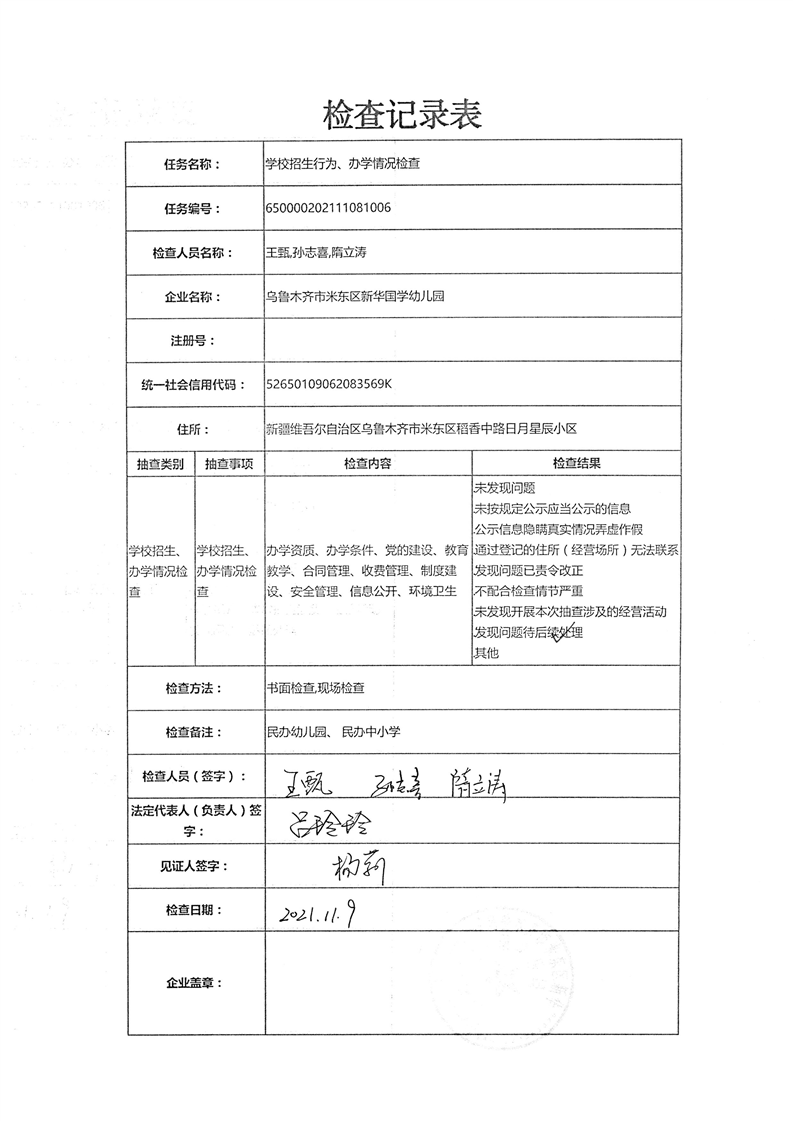 检查记录表
任务名称： 学校招生行为、办学情况检查
任务编号： 650000202111081006
检查人员名称： 王甄,孙志喜,隋立涛
企业名称： 乌鲁木齐市米东区新华国学幼儿园
注册号：
统一社会信用代码： 52650109062083569K
住所： 新疆维吾尔自治区乌鲁木齐市米东区稻香中路日月星辰小区
抽查类别 抽查事项 检查内容 检查结果
学校招生、
办学情况检
查
学校招生、
办学情况检
查
办学资质、办学条件、党的建设、教育
教学、合同管理、收费管理、制度建
设、安全管理、信息公开、环境卫生
.未发现问题
.未按规定公示应当公示的信息
.公示信息隐瞒真实情况弄虚作假
.通过登记的住所（经营场所）无法联系
.发现问题已责令改正
.不配合检查情节严重
.未发现开展本次抽查涉及的经营活动
.发现问题待后续处理
.其他
检查方法： 书面检查,现场检查
检查备注： 民办幼儿园、 民办中小学
检查人员（签字）： 王甄 孙志喜 隋立涛
法定代表人（负责人）签
字： 吕玲玲
见证人签字： 杨莉
检查日期： 2021.11.9
企业盖章：